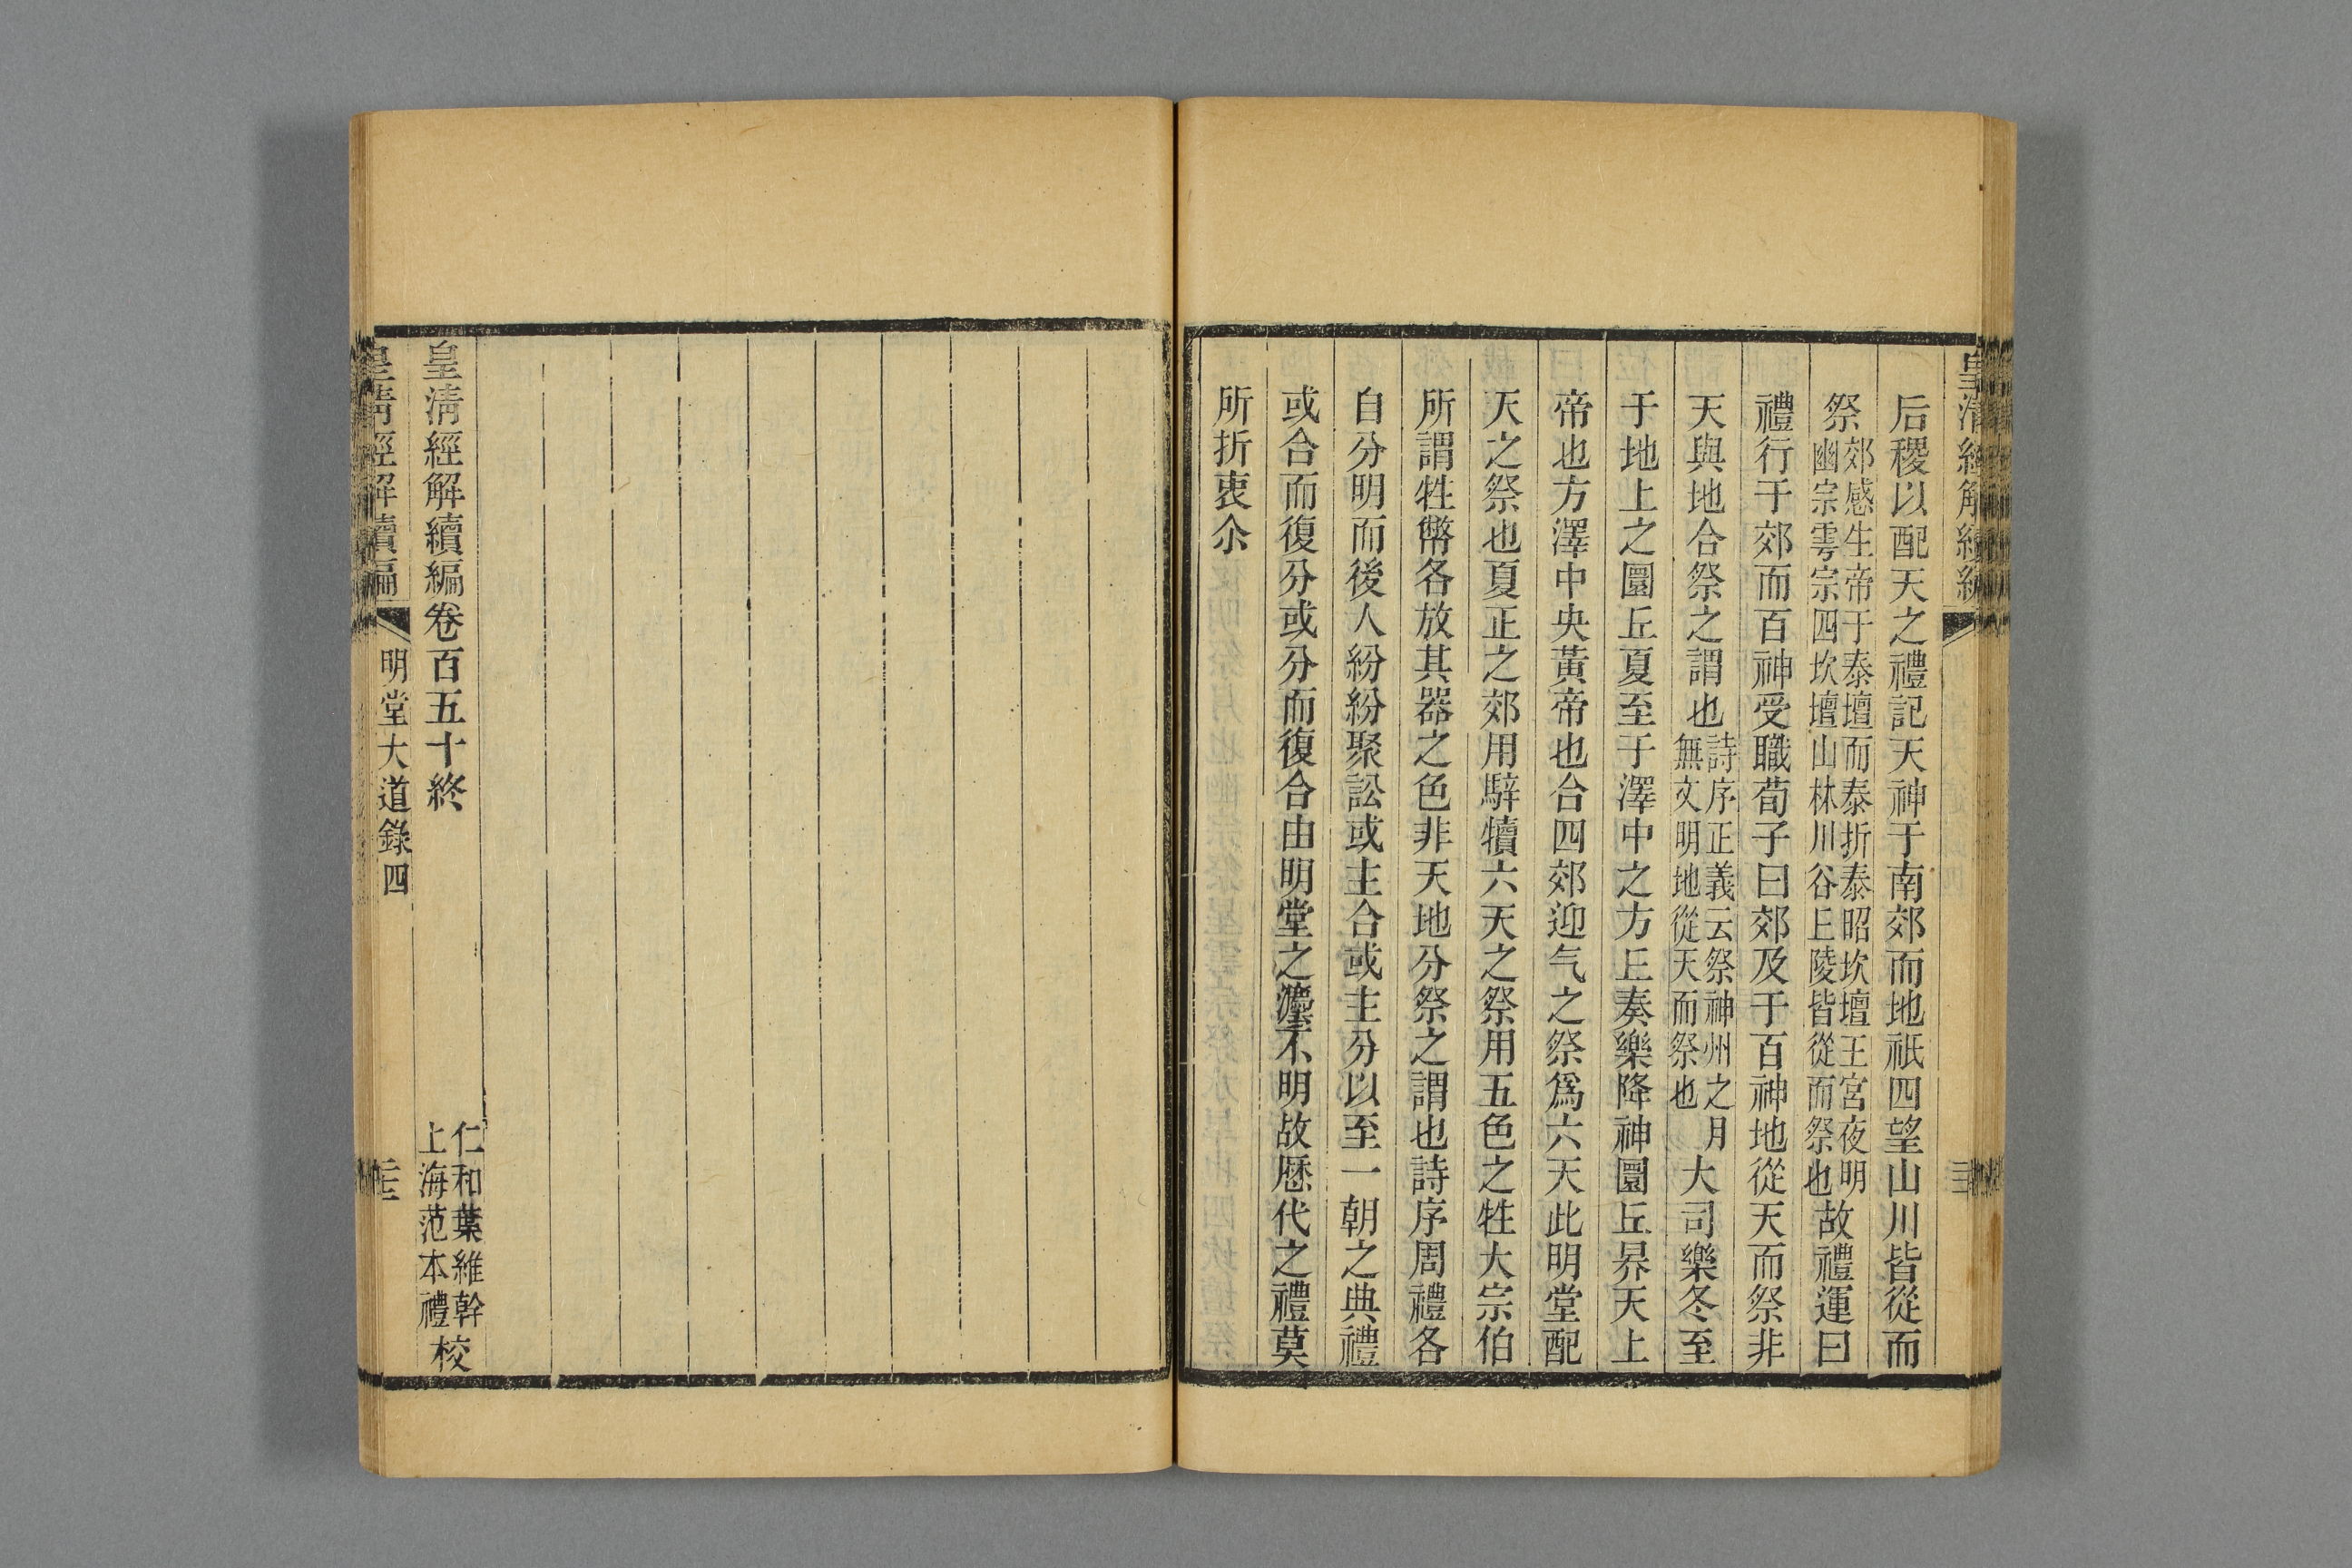 皇清經解續編
后稷以配天之禮記天神于南郊而地祇四望山川皆從而
祭郊感生帝于泰壇而泰折泰昭坎壇王宮夜明
幽宗雩宗四坎壇山林川谷丘陵皆從而祭也故禮運曰
禮行于郊而百神受職荀子曰郊及于百神地從天而祭非
天與地合祭之謂也詩序正義云祭神州之月
無文明地從天而祭也大司樂冬至
于地上之圜丘夏至于澤中之方丘奏樂降神圜丘昦天上
帝也方澤中央黃帝也合四郊迎气之祭爲六天此明堂配
天之祭也夏正之郊用騂犢六天之祭用五色之牲大宗伯
所謂牲幣各放其器之色非天地分祭之謂也詩序周禮各
自分明而後人紛紛聚訟或主合或主分以至一朝之典禮
或合而復分或分而復合由明堂之灋不明故厯代之禮莫
所折衷尒
皇清經解續編卷百五十終
仁和葉維幹
上海范本禮校
皇清經解續編
明堂大道錄四